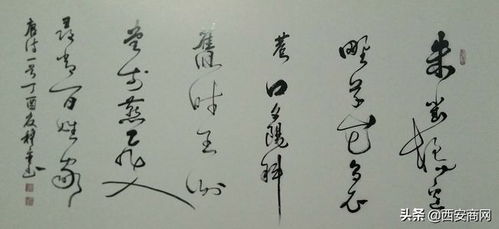 朱雀桥边
野草花乌衣
巷口夕陽斜
舊時王谢
堂前燕飛入
尋常百姓家
唐诗一首丁酉夏
头条 @西安商网